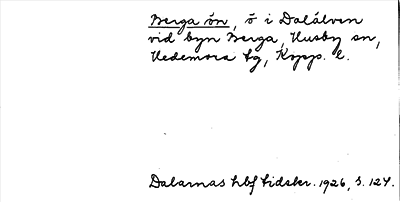 Berga ön, ö i Dalälven
vid byn Berga, Husby sn,
Hedemora tg, Kopp. l.
Dalarnas hbf tidskr. 1926, s. 124.